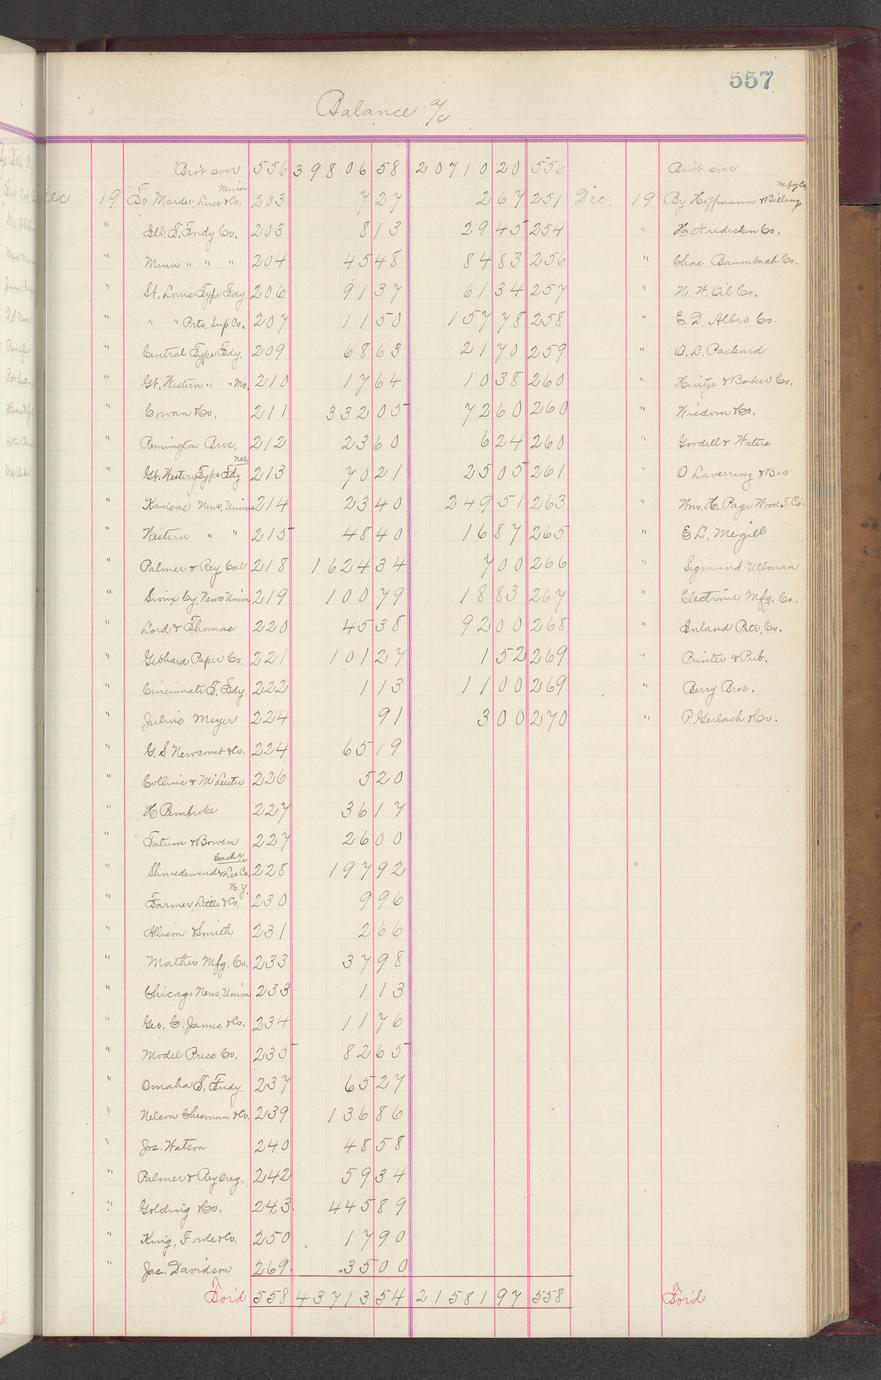 557
Balance a/c
Bro't over 556 39806 58 20710 20 556 Bro't over
Dec 19 To Marder, Luse & Co. Minn 203 7 27 2 67 251 Dec. 19 By Hoffmann & Billing Mfg Co
" Ill. T. Fndy Co. 203 8 13 29 45 254 " H. Niedecken Co.
" Minn " " " 204 45 48 84 83 256 " Chas. Baumbach Co.
" St. Louis Type Fdy 206 91 37 61 34 257 " N. W. Oil Co.
" " " Prts. Sup Co. 207 11 50 157 78 258 " E. D. Albro Co.
" Central Type Fdy. 209 68 63 21 70 259 " O. L. Packard
" Gt. Western " " Mo. 210 17 64 10 38 260 " Hintze & Baker Co.
" Cowan & Co. 211 332 05 72 60 260 " Wisdom & Co.
" Remington Bros. 212 23 60 6 24 260 " Goodell & Waters
" Gt. Western Type Fdy Neb 213 70 21 25 05 261 " O Laverring & Bro
" Kansas News, Union 214 23 40 249 51 263 " Wm. H. Page Wood T. Co.
" Western " " 215 48 40 16 87 265 " E L. Megill
" Palmer & Rey Cal 218 1624 34 7 00 266 " Sigmund Ullman
" Sioux Cy. News Union 219 100 79 18 83 267 " Electrine Mfg. Co.
" Lord & Thomas 220 45 38 92 00 268 " Inland Ptr. Co.
" Gebhard Paper Co. 221 101 27 1 52 269 " Printer & Pub.
" Cincinnati T. Fdy 222 1 13 11 00 269 " Berry Bros.
" Julius Meyer 224 91 3 00 270 " P. Gerlach & Co.
" G. S Newcomb & Co. 224 65 19
" Collins & McLeester 226 5 20
" H Pembroke 227 36 17
" Tatum & Bowen 227 26 00
" Shniedewend & Lee Co. Cash a/c 228 197 92
" Farmer, Little & Co. N.Y. 230 9 96
" Allison & Smith 231 2 66
" Mather Mfg. Co. 233 37 98
" Chicago News, Union 233 1 13
" Geo. C. James & Co. 234 11 76
" Model Press Co. 235 82 65
" Omaha T. Fndy. 237 65 27
" Nelson Chesman & Co. 239 136 86
" Jos. Watson 240 48 58
" Palmer & Rey Oreg. 242 59 34
" Golding & Co. 243 445 89
" King, Fowle & Co. 250 17 90
" Jas. Davidson 269 35 00
For'd 558 43713 54 21581 97 558 For'd